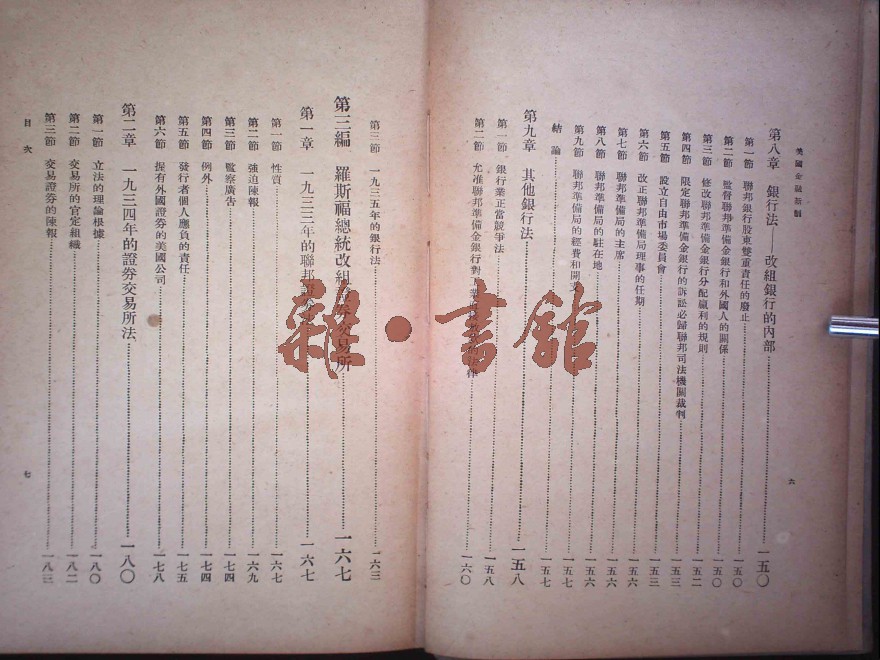 美國金融新制
第八章　銀行法——改組銀行的內部………一五〇
第一節　聯邦銀行股東雙重責任的廢止………一五〇
第二節　監督聯邦準備金銀行和外國人的關係………一五〇
第三節　修改聯邦準備金銀行分配贏利的規則………一五二
第四節　限定聯邦準備金銀行的訴訟必歸聯邦司法機關裁判………一五三
第五節　設立自由市場委員會………一五三
第六節　改正聯邦準備局理事的任期………一五六
第七節　聯邦準備局的主席………一五六
第八節　聯邦準備局的駐在地………一五六
第九節　聯邦準備局的經費和開支………一五七
結論………一五七
第九章　其他銀行法………一五八
第一節　銀行業正當競爭法………一五八
第二節　允准聯邦準備金銀行對工業………一六〇
六
第三節　一九三五年的銀行法………一六三
第三編　羅斯福總統改組證券交易所………一六七
第一章　一九三三年的聯邦證券法………一六七
第一節　性質………一六七
第二節　強迫陳報………一六九
第三節　監察廣告………一七四
第四節　例外………一七四
第五節　發行者個人應負的責任………一七五
第六節　握有外國證券的美國公司………一七八
第二章　一九三四年的證券交易所法………一八〇
第一節　立法的理論根據………一八〇
第二節　交易所的官定組織………一八二
第三節　交易證券的陳報………一八三
目次
七
雜·書館